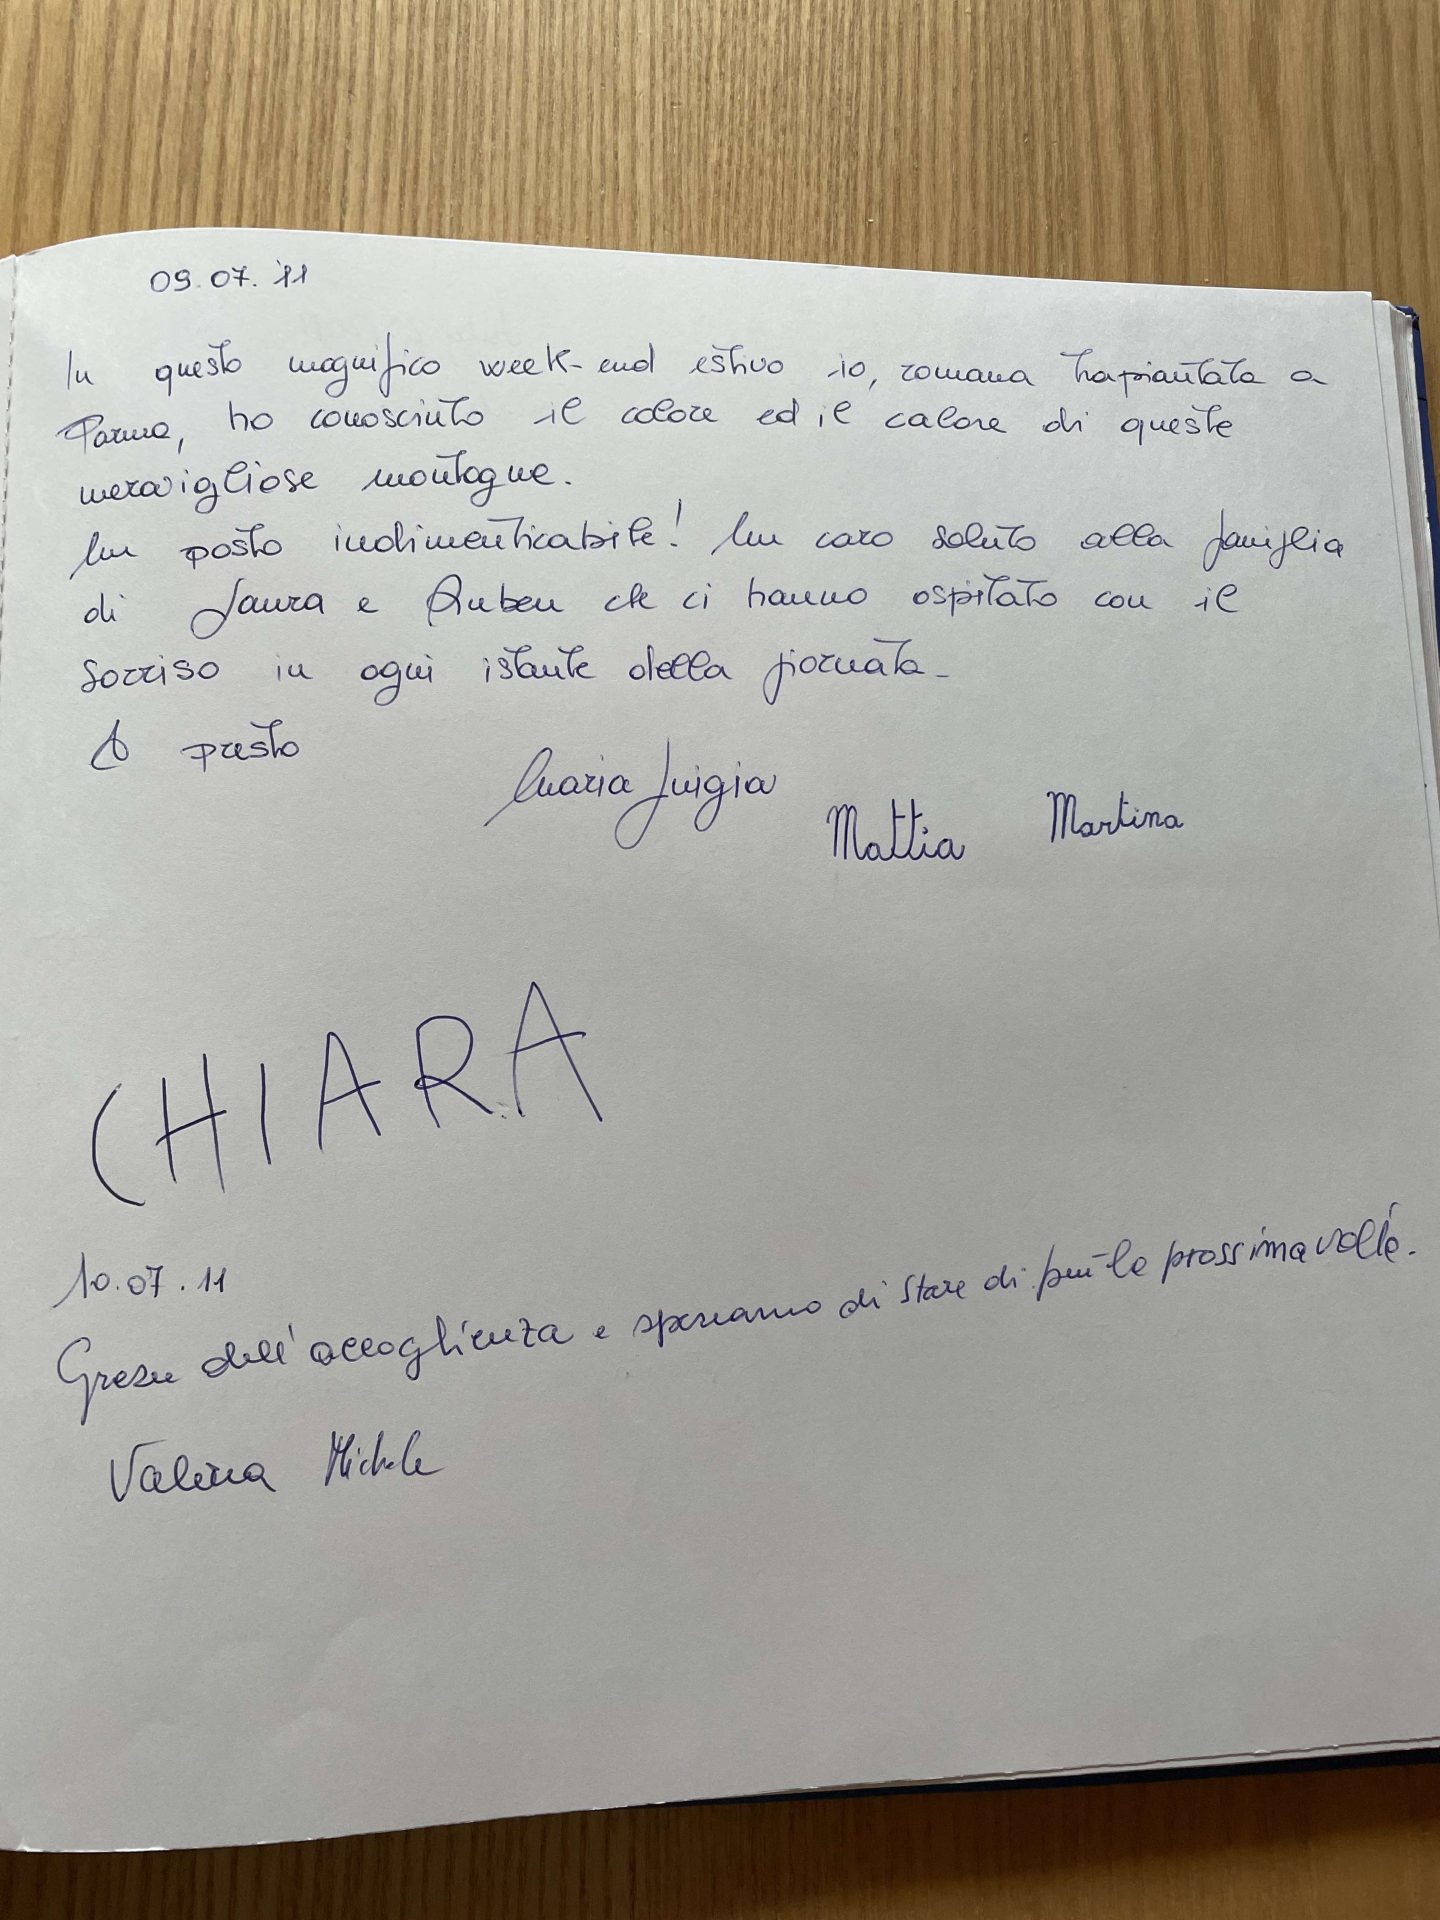 09.07.'11
In questo magnifico week-end estivo io, romana trapiantata a
Parma, ho conosciuto il colore ed il calore di queste
meravigliose montagne.
Un posto indimenticabile! Un caro saluto alla famiglia
di Laura e Ruben che ci hanno ospitato con il
sorriso in ogni istante della giornata-
A presto
Maria Luigia
Mattia Martina
CHIARA
10.07.11
Grazie dell'accoglienza e speriamo di stare di più la prossima volta.
Valeria Michele